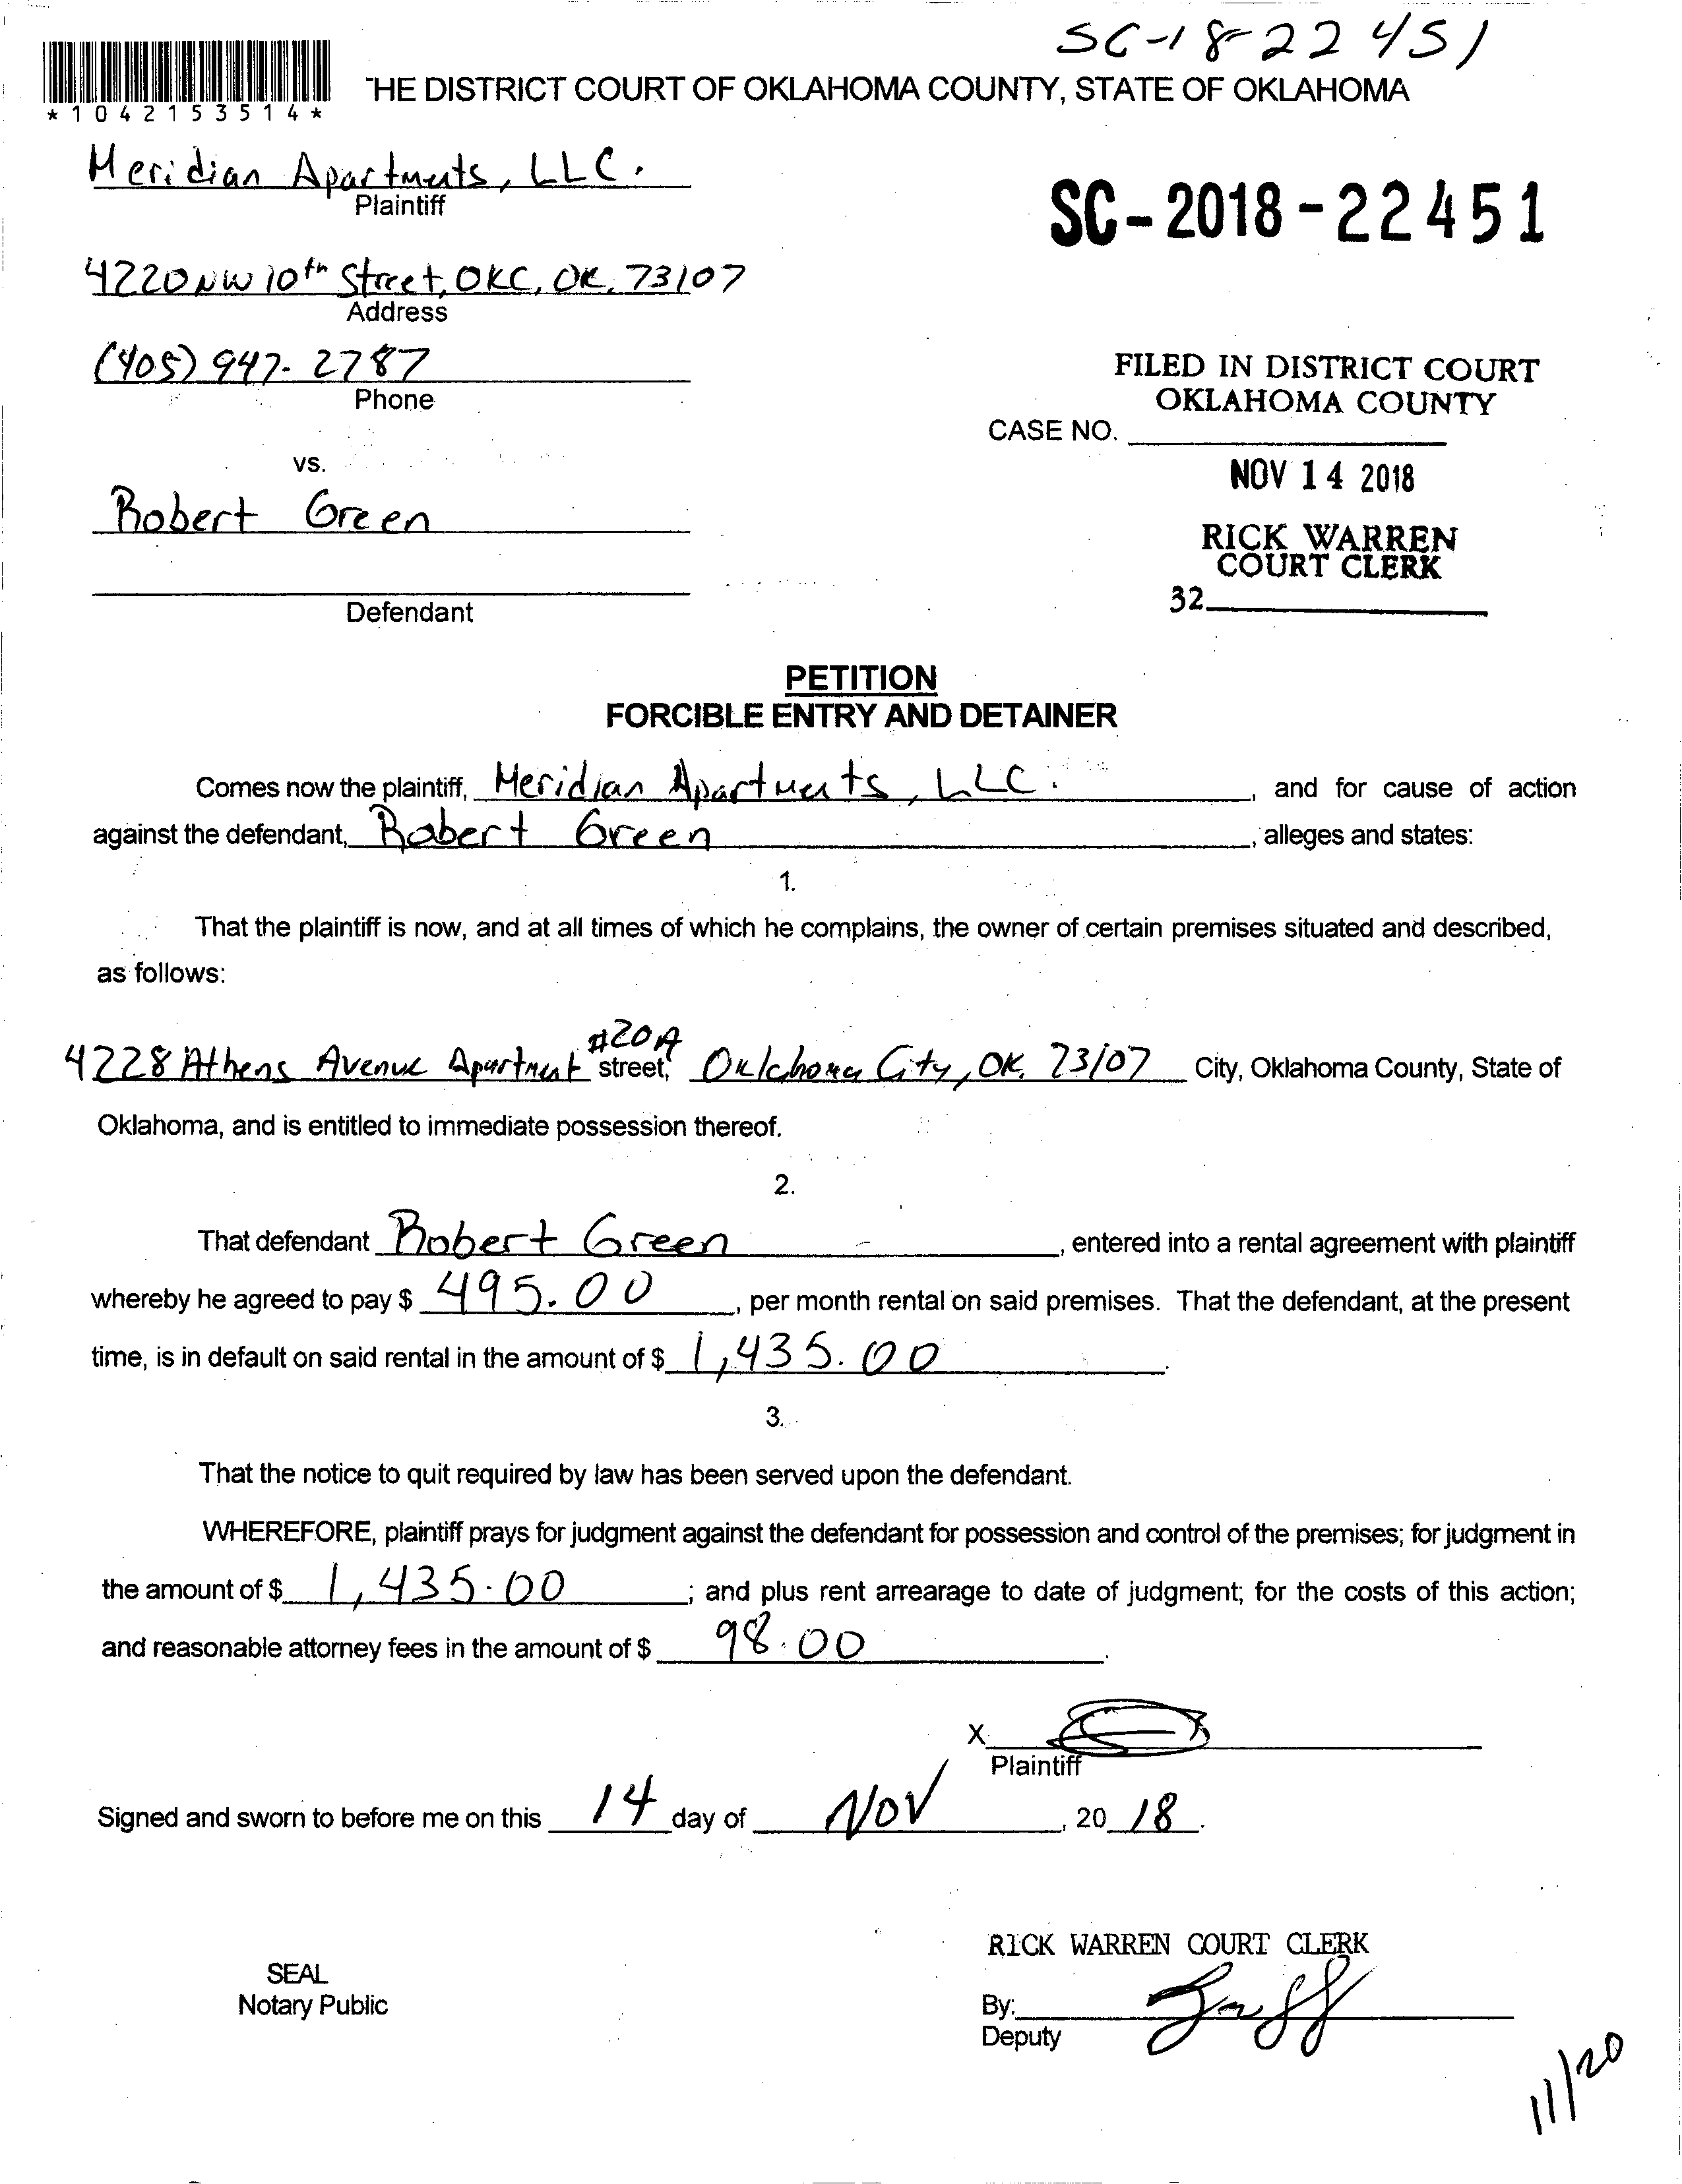 SC-18-22451
THE DISTRICT COURT OF OKLAHOMA COUNTY, STATE OF OKLAHOMA
*1042153514*
Meridian Apartments, LLC.
Plaintiff
SC-2018-22451
4220 NW 10th Street, OKC, OK. 73107
Address
(405) 947-2787
Phone
FILED IN DISTRICT COURT
OKLAHOMA COUNTY
CASE NO.
vs.
NOV 14 2018
Robert Green
RICK WARREN
COURT CLERK
32
Defendant
PETITION
FORCIBLE ENTRY AND DETAINER
Comes now the plaintiff, Meridian Apartments, LLC. , and for cause of action
against the defendant, Robert Green , alleges and states:
1.
That the plaintiff is now, and at all times of which he complains, the owner of certain premises situated and described,
as follows:
#20A
4228 Athens Avenue Apartment street, Oklahoma City, OK. 73107 City, Oklahoma County, State of
Oklahoma, and is entitled to immediate possession thereof.
2.
That defendant Robert Green , entered into a rental agreement with plaintiff
whereby he agreed to pay $ 495.00 , per month rental on said premises. That the defendant, at the present
time, is in default on said rental in the amount of $ 1,435.00 .
3.
That the notice to quit required by law has been served upon the defendant.
WHEREFORE, plaintiff prays for judgment against the defendant for possession and control of the premises; for judgment in
the amount of $ 1,435.00 ; and plus rent arrearage to date of judgment; for the costs of this action;
and reasonable attorney fees in the amount of $ 98.00 .
X
Plaintiff
Signed and sworn to before me on this 14 day of Nov , 20 18 .
RICK WARREN COURT CLERK
SEAL
Notary Public
By:
Deputy
11/20